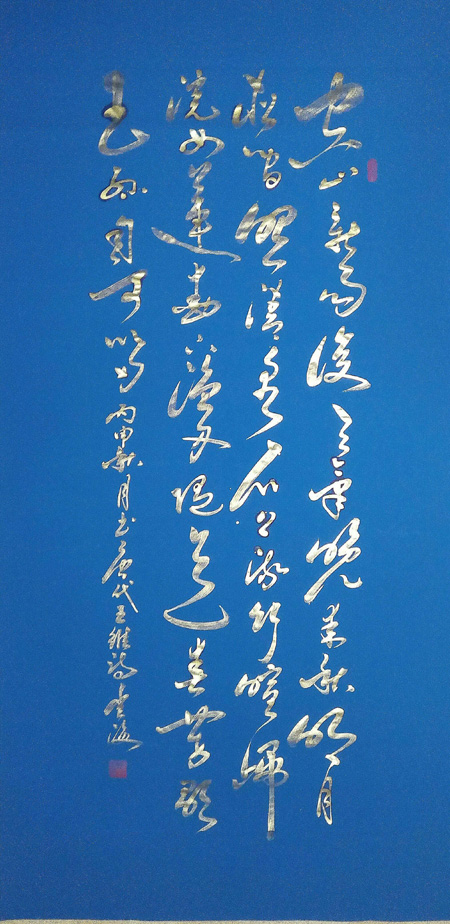 空山新雨後天氣晚來秋明月
松間照清泉石上流竹喧歸
浣女蓮動下漁舟隨意春芳歇
王孫自可留丙申秋月書唐代王維詩